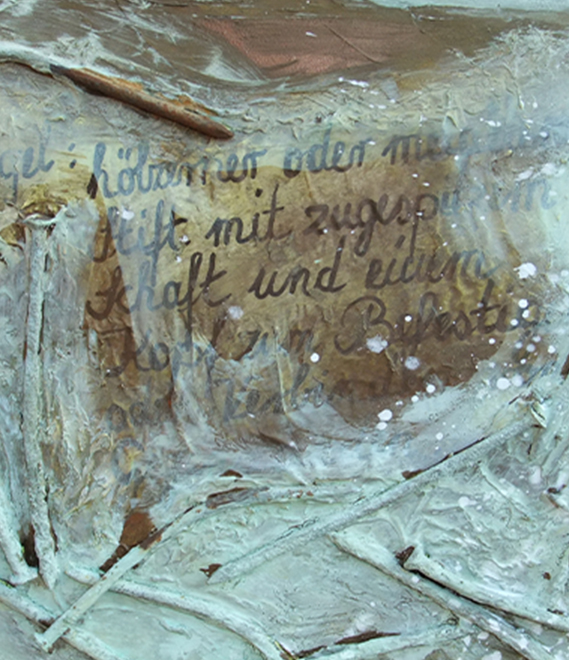 gel: hölzerner oder
Stift mit zugesp
Schaft und einem
Kopf zum Befestig
oder